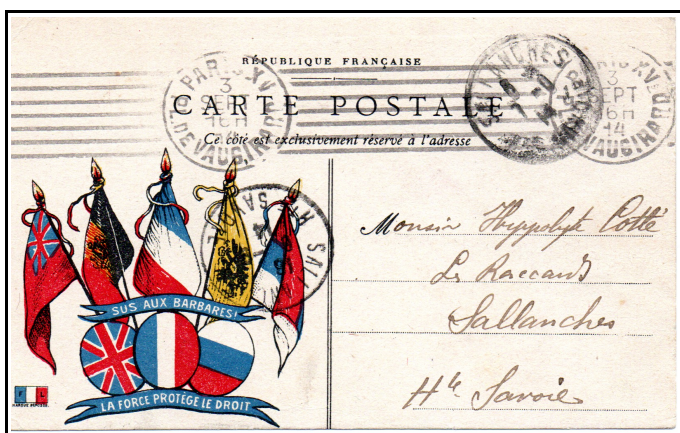 RÉPUBLIQUE FRANÇAISE
CARTE POSTALE
Ce côté est exclusivement réservé à l'adresse
PARIS XV
3
SEPT
16H
14
R. DE VAUGIRARD
SALLANCHES
PARIS XV
3
SEPT
16H
14
VAUGIRARD
SUS AUX BARBARES!
LA FORCE PROTÉGE LE DROIT
F L
Hippolyte Cotté
Sallanches
Hte Savoie